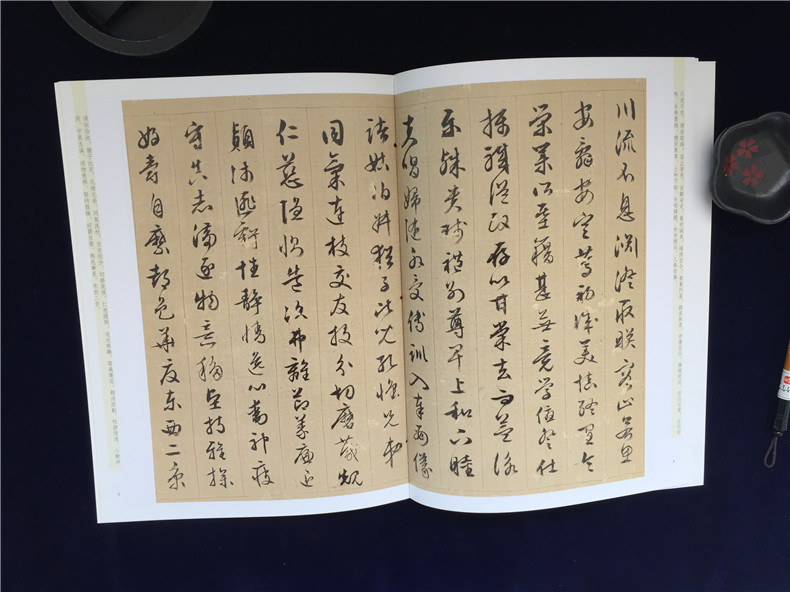 川流不息淵澄取映容止若思
言辭安定篤初誠美慎終宜令
榮業所基籍甚無竟學優登仕
攝職從政存以甘棠去而益詠
樂殊貴賤禮別尊卑上和下睦
夫唱婦隨外受傅訓入奉母儀
諸姑伯叔猶子比兒孔懷兄弟
同氣連枝交友投分切磨箴規
仁慈隱惻造次弗離節義廉退
顛沛匪虧性靜情逸心動神疲
守真志滿逐物意移堅持雅操
好爵自縻都邑華夏東西二京